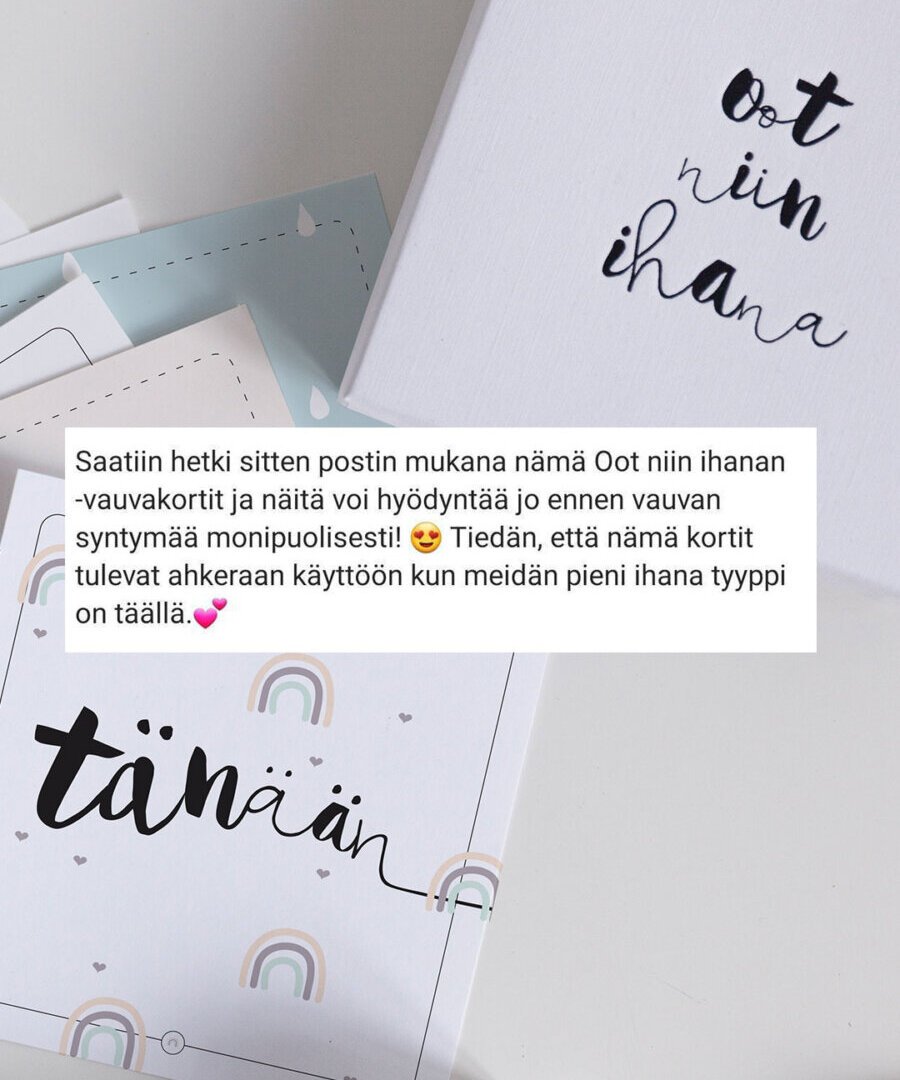 oot
niin
ihana
Saatiin hetki sitten postin mukana nämä Oot niin ihanan
-vauvakortit ja näitä voi hyödyntää jo ennen vauvan
syntymää monipuolisesti! 😍 Tiedän, että nämä kortit
tulevat ahkeraan käyttöön kun meidän pieni ihana tyyppi
on täällä.💕
tänään